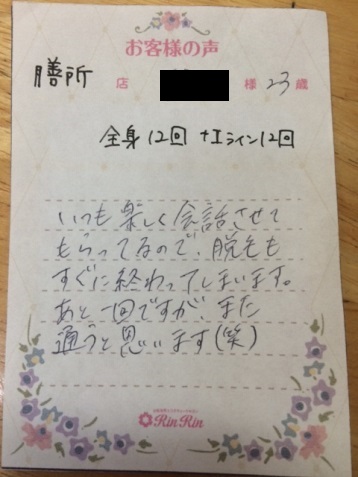 お客様の声
膳所 店 様 23歳
全身12回 +Iライン12回
いつも楽しく会話させて
もらってるので、脱毛も
すぐに終わってしまいます。
あと一回ですが、また
通うと思います(笑)
RinRin